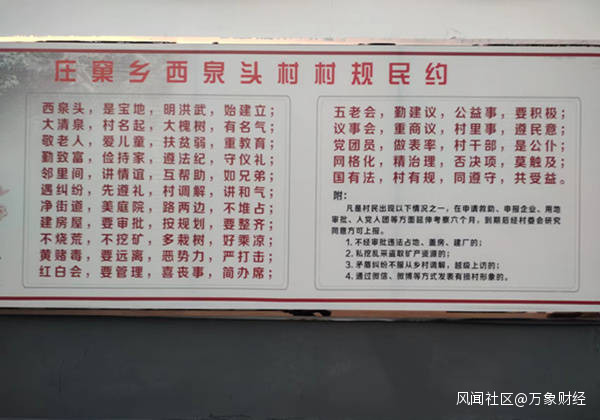 庄窠乡西泉头村村规民约
西泉头，是宝地，明洪武，始建立；
大清泉，村名起，大槐树，有名气；
敬老人，爱儿童，扶贫弱，重教育；
勤致富，俭持家，遵法纪，守仪礼；
邻里间，讲情谊，互帮助，如兄弟；
遇纠纷，先遵礼，村调解，讲和气；
净街道，美庭院，路两边，不堆占；
建房屋，要审批，按规划，要整齐；
不烧荒，不挖矿，多栽树，好乘凉；
黄赌毒，要远离，恶势力，严打击；
红白会，要管理，喜丧事，简办席；
五老会，勤建议，公益事，要积极；
议事会，重商议，村里事，遵民意；
党团员，做表率，村干部，是公仆；
网格化，精治理，否决项，莫触及；
国有法，村有规，同遵守，共受益。
附：
凡是村民出现以下情况之一，在申请救助、申报企业、用地
审批、入党入团等方面延伸考察六个月，到期后经村委会研究
同意方可上报。
1、不经审批违法占地、盖房、建厂的；
2、私挖乱采盗取矿产资源的；
3、矛盾纠纷不服从乡村调解，越级上访的；
4、通过微信、微博等方式发表有损村形象的。
风闻社区@万象财经